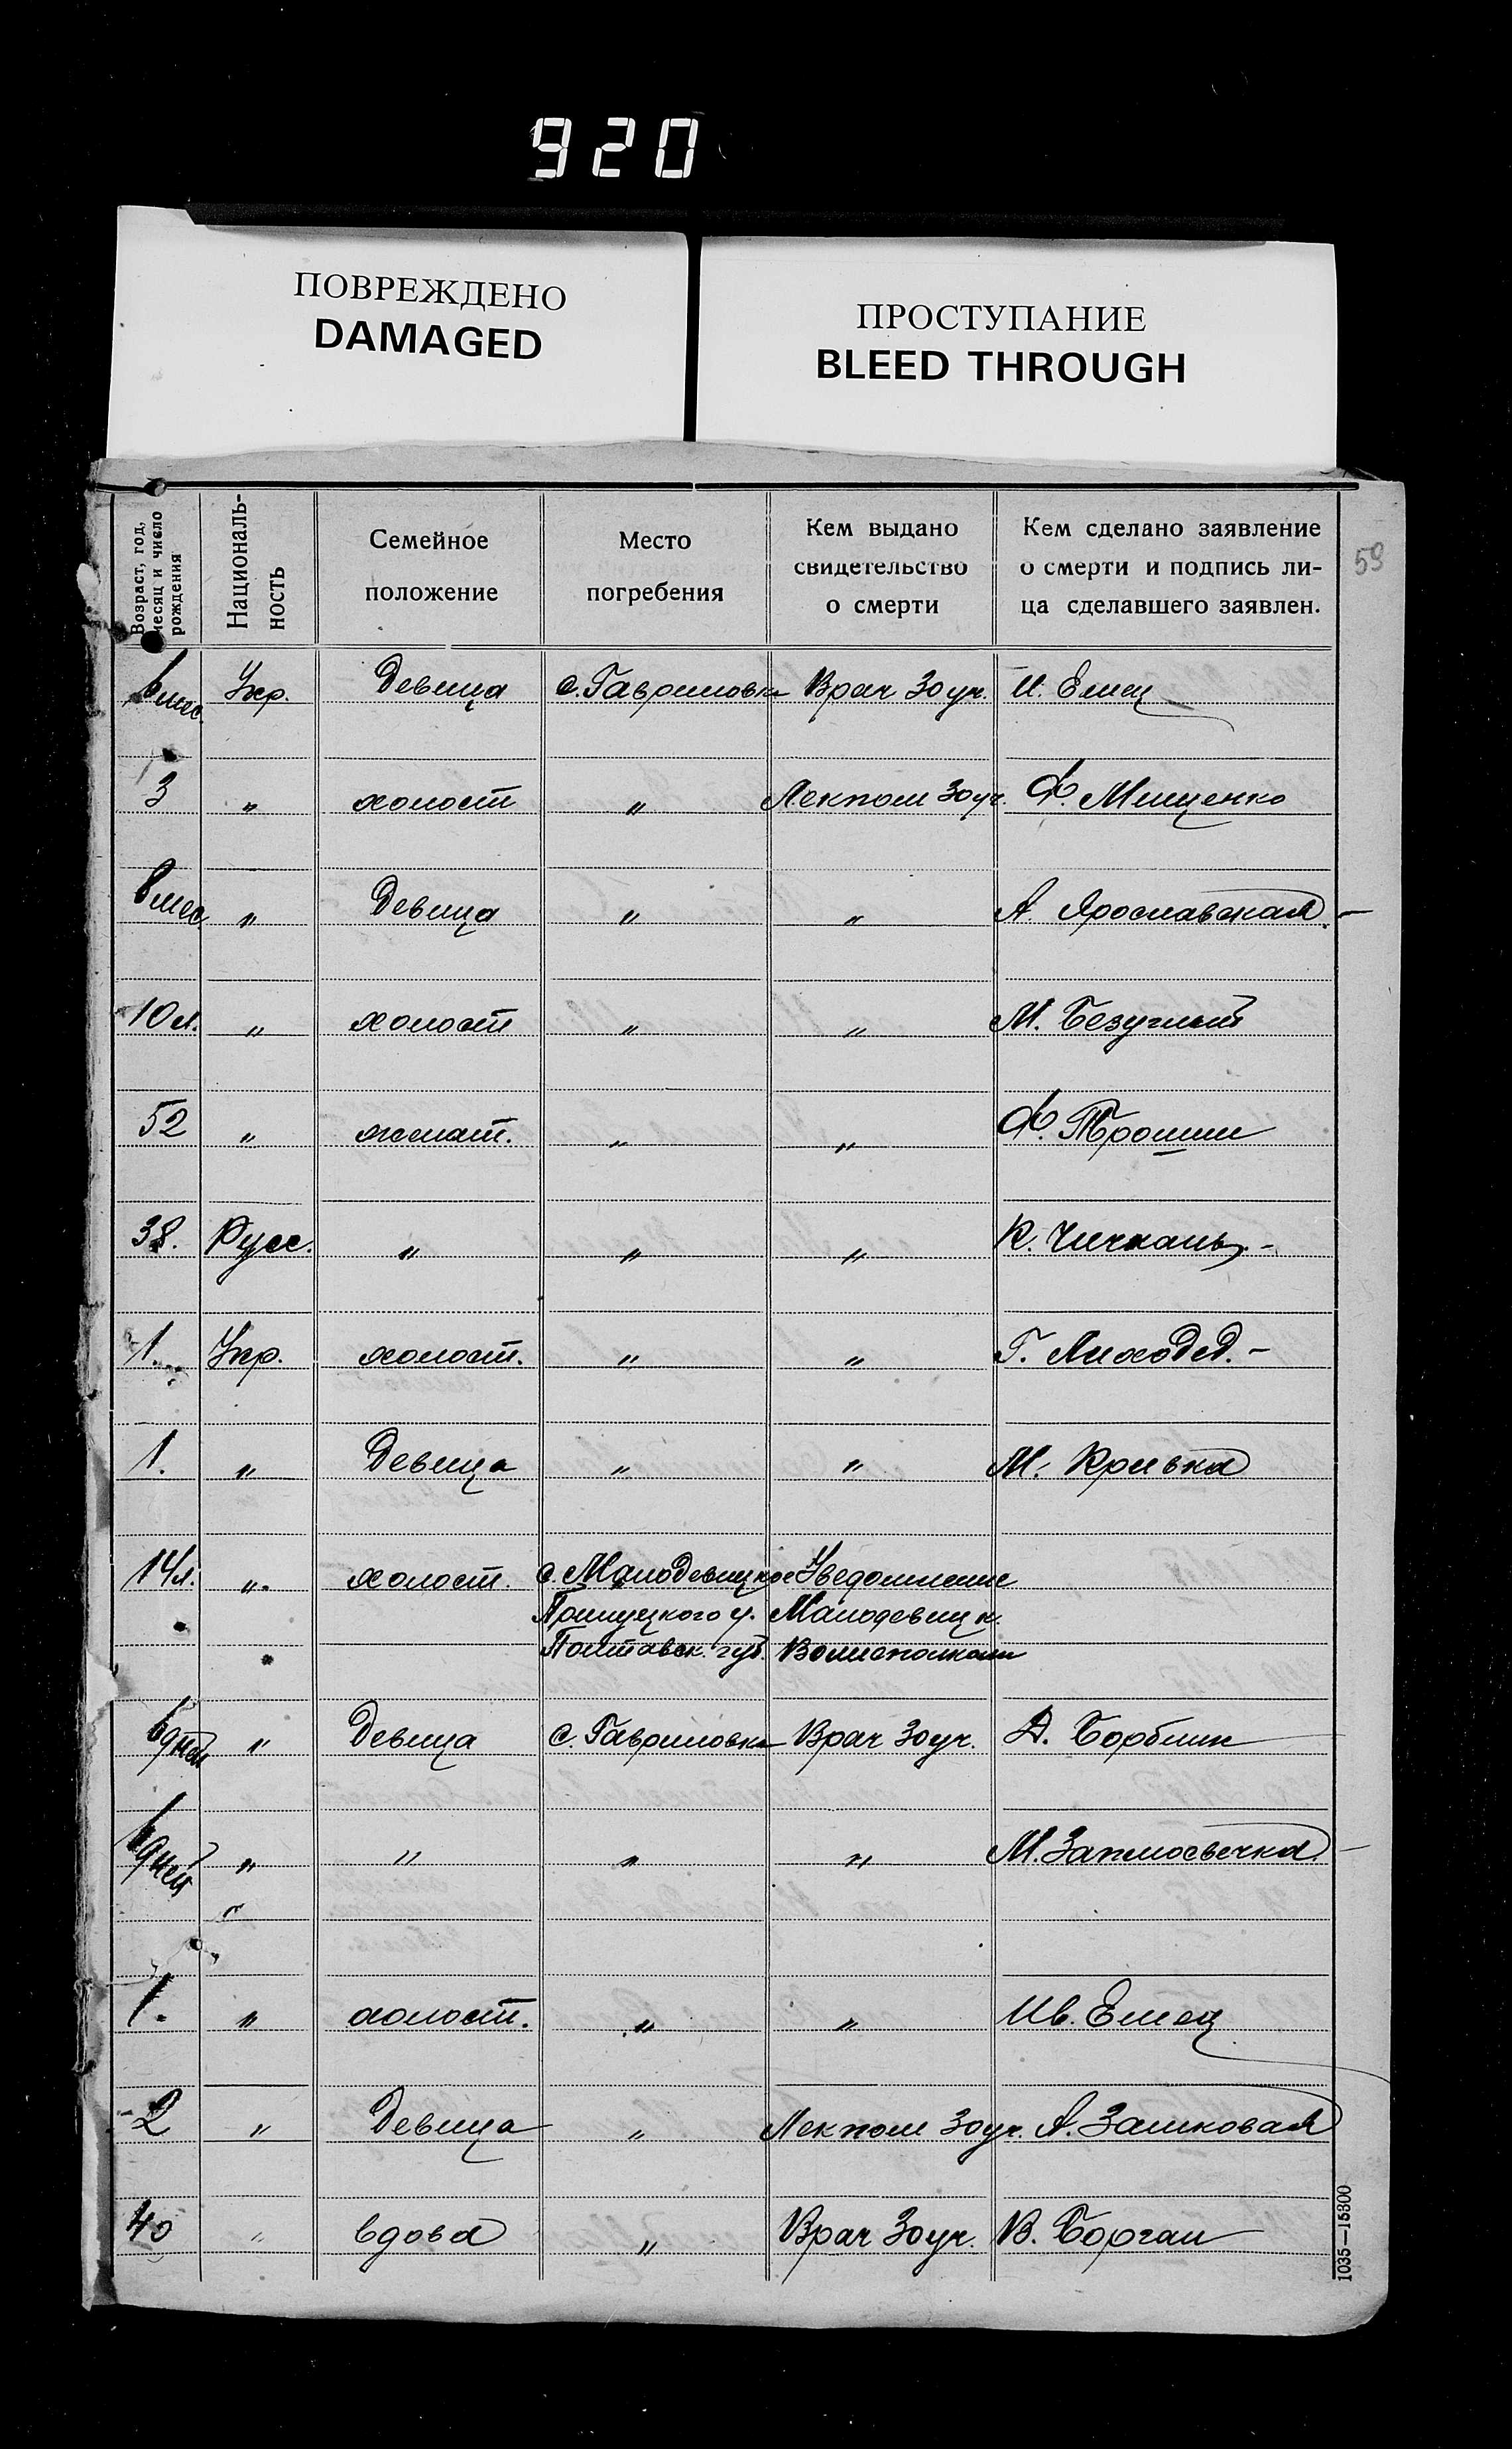 920
ПОВРЕЖДЕНО
DAMAGED
ПРОСТУПАНИЕ
BLEED THROUGH
59
Возраст, год, месяц и число рождения
Националь-
ность
Семейное
положение
Место
погребения
Кем выдано
свидетельство
о смерти
Кем сделано заявление
о смерти и подпись ли-
ца сделавшего заявлен.
6 мес. Укр. Девица с. Гавриловка Врач 30 уч. И. Емец
3 " холост " Лекпом 30 уч. Ф. Мищенко
мес. " Девица " " А. Ярославская. –
10 л. " холост " " М. Безуглый
52 " женат. " " Ф. Трошин
38. Русс. " " " К. Чичкань. -
1. Укр. холост. " " Г. Лиходед. –
1. " Девица " " М. Кривка
14 л. " холост. с. Малодевицкое Уведомление
Прилуцкого у. Малодевицк.
Полтавск. губ. Волисполкома
6 дней " Девица с. Гавриловка Врач 30 уч. Борблик
6 дней " " " " М. –
1. " холост. " " Ив. Емец
2 " Девица " Лекпом 30 уч. А. Зашковая
40 " вдова " Врач 30 уч. В. Борган
1035—15300